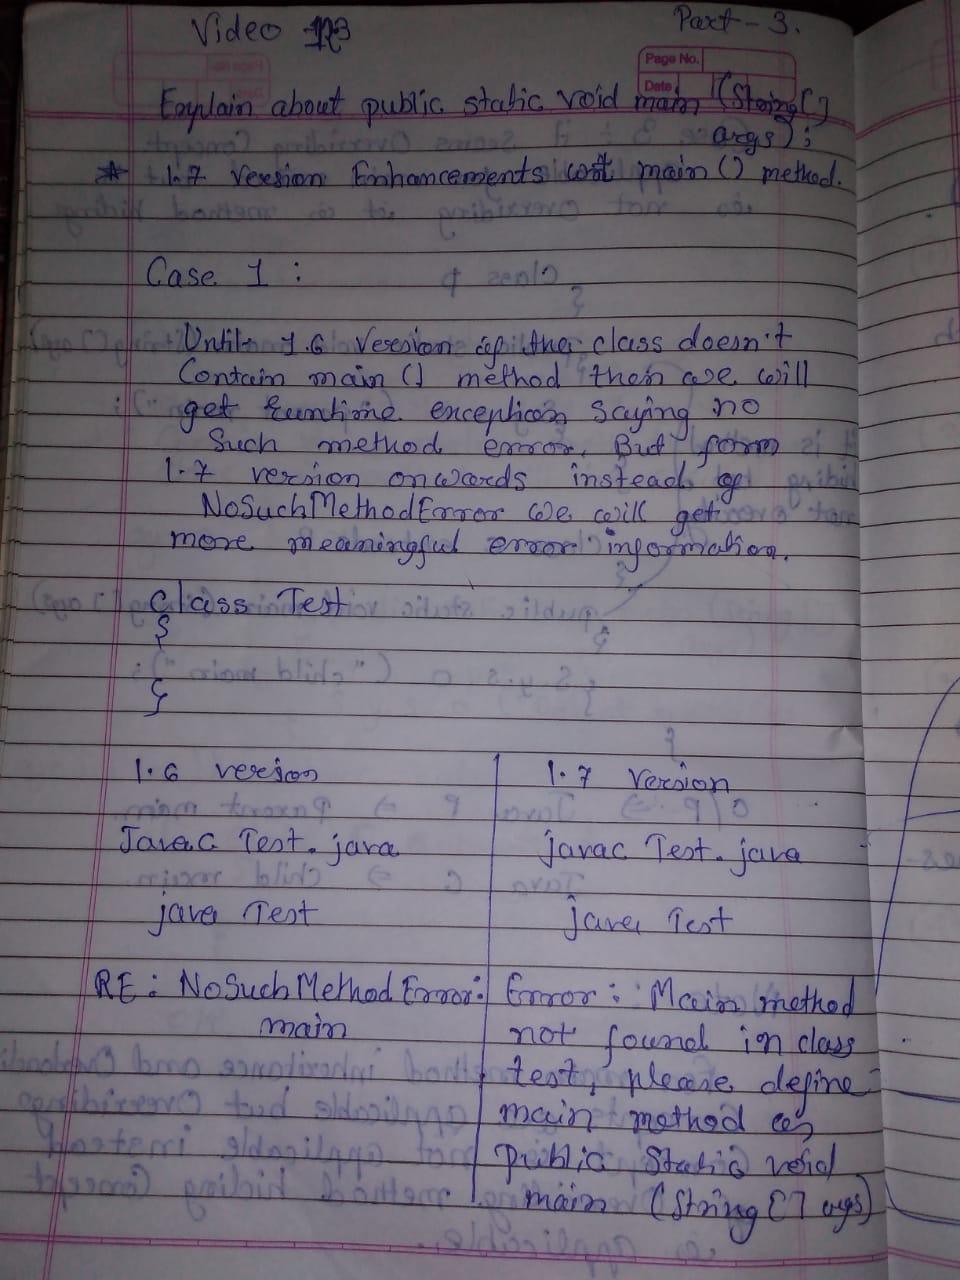 Video 123
Part - 3.
Page No.
Date
Explain about public static void main (String[]
args);
* 1.7 version Enhancements wrt main() method.
Case 1 :
Until 1.6 version if the class doesn't
Contain main () method then we will
get runtime exception saying no
Such method error. But form
1.7 version onwards instead of
NoSuchMethodError we will get
more meaningful error information.
Class Test
{
}
1.6 version
Javac Test.java
java Test
RE : NoSuchMethodError:
main
1.7 Version
javac Test.java
java Test
Error : Main method
not found in class
test, please define
main method as
public static void
main (String[] args)